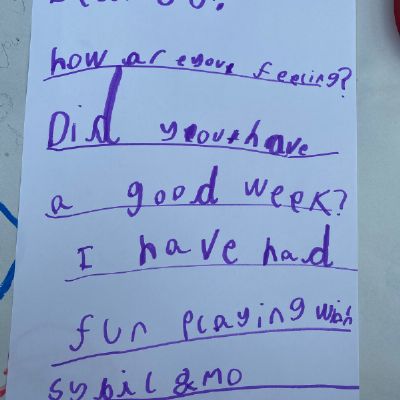 how are you feeling?
Did you have
a good week?
I have had
fun playing with
sybil & mo